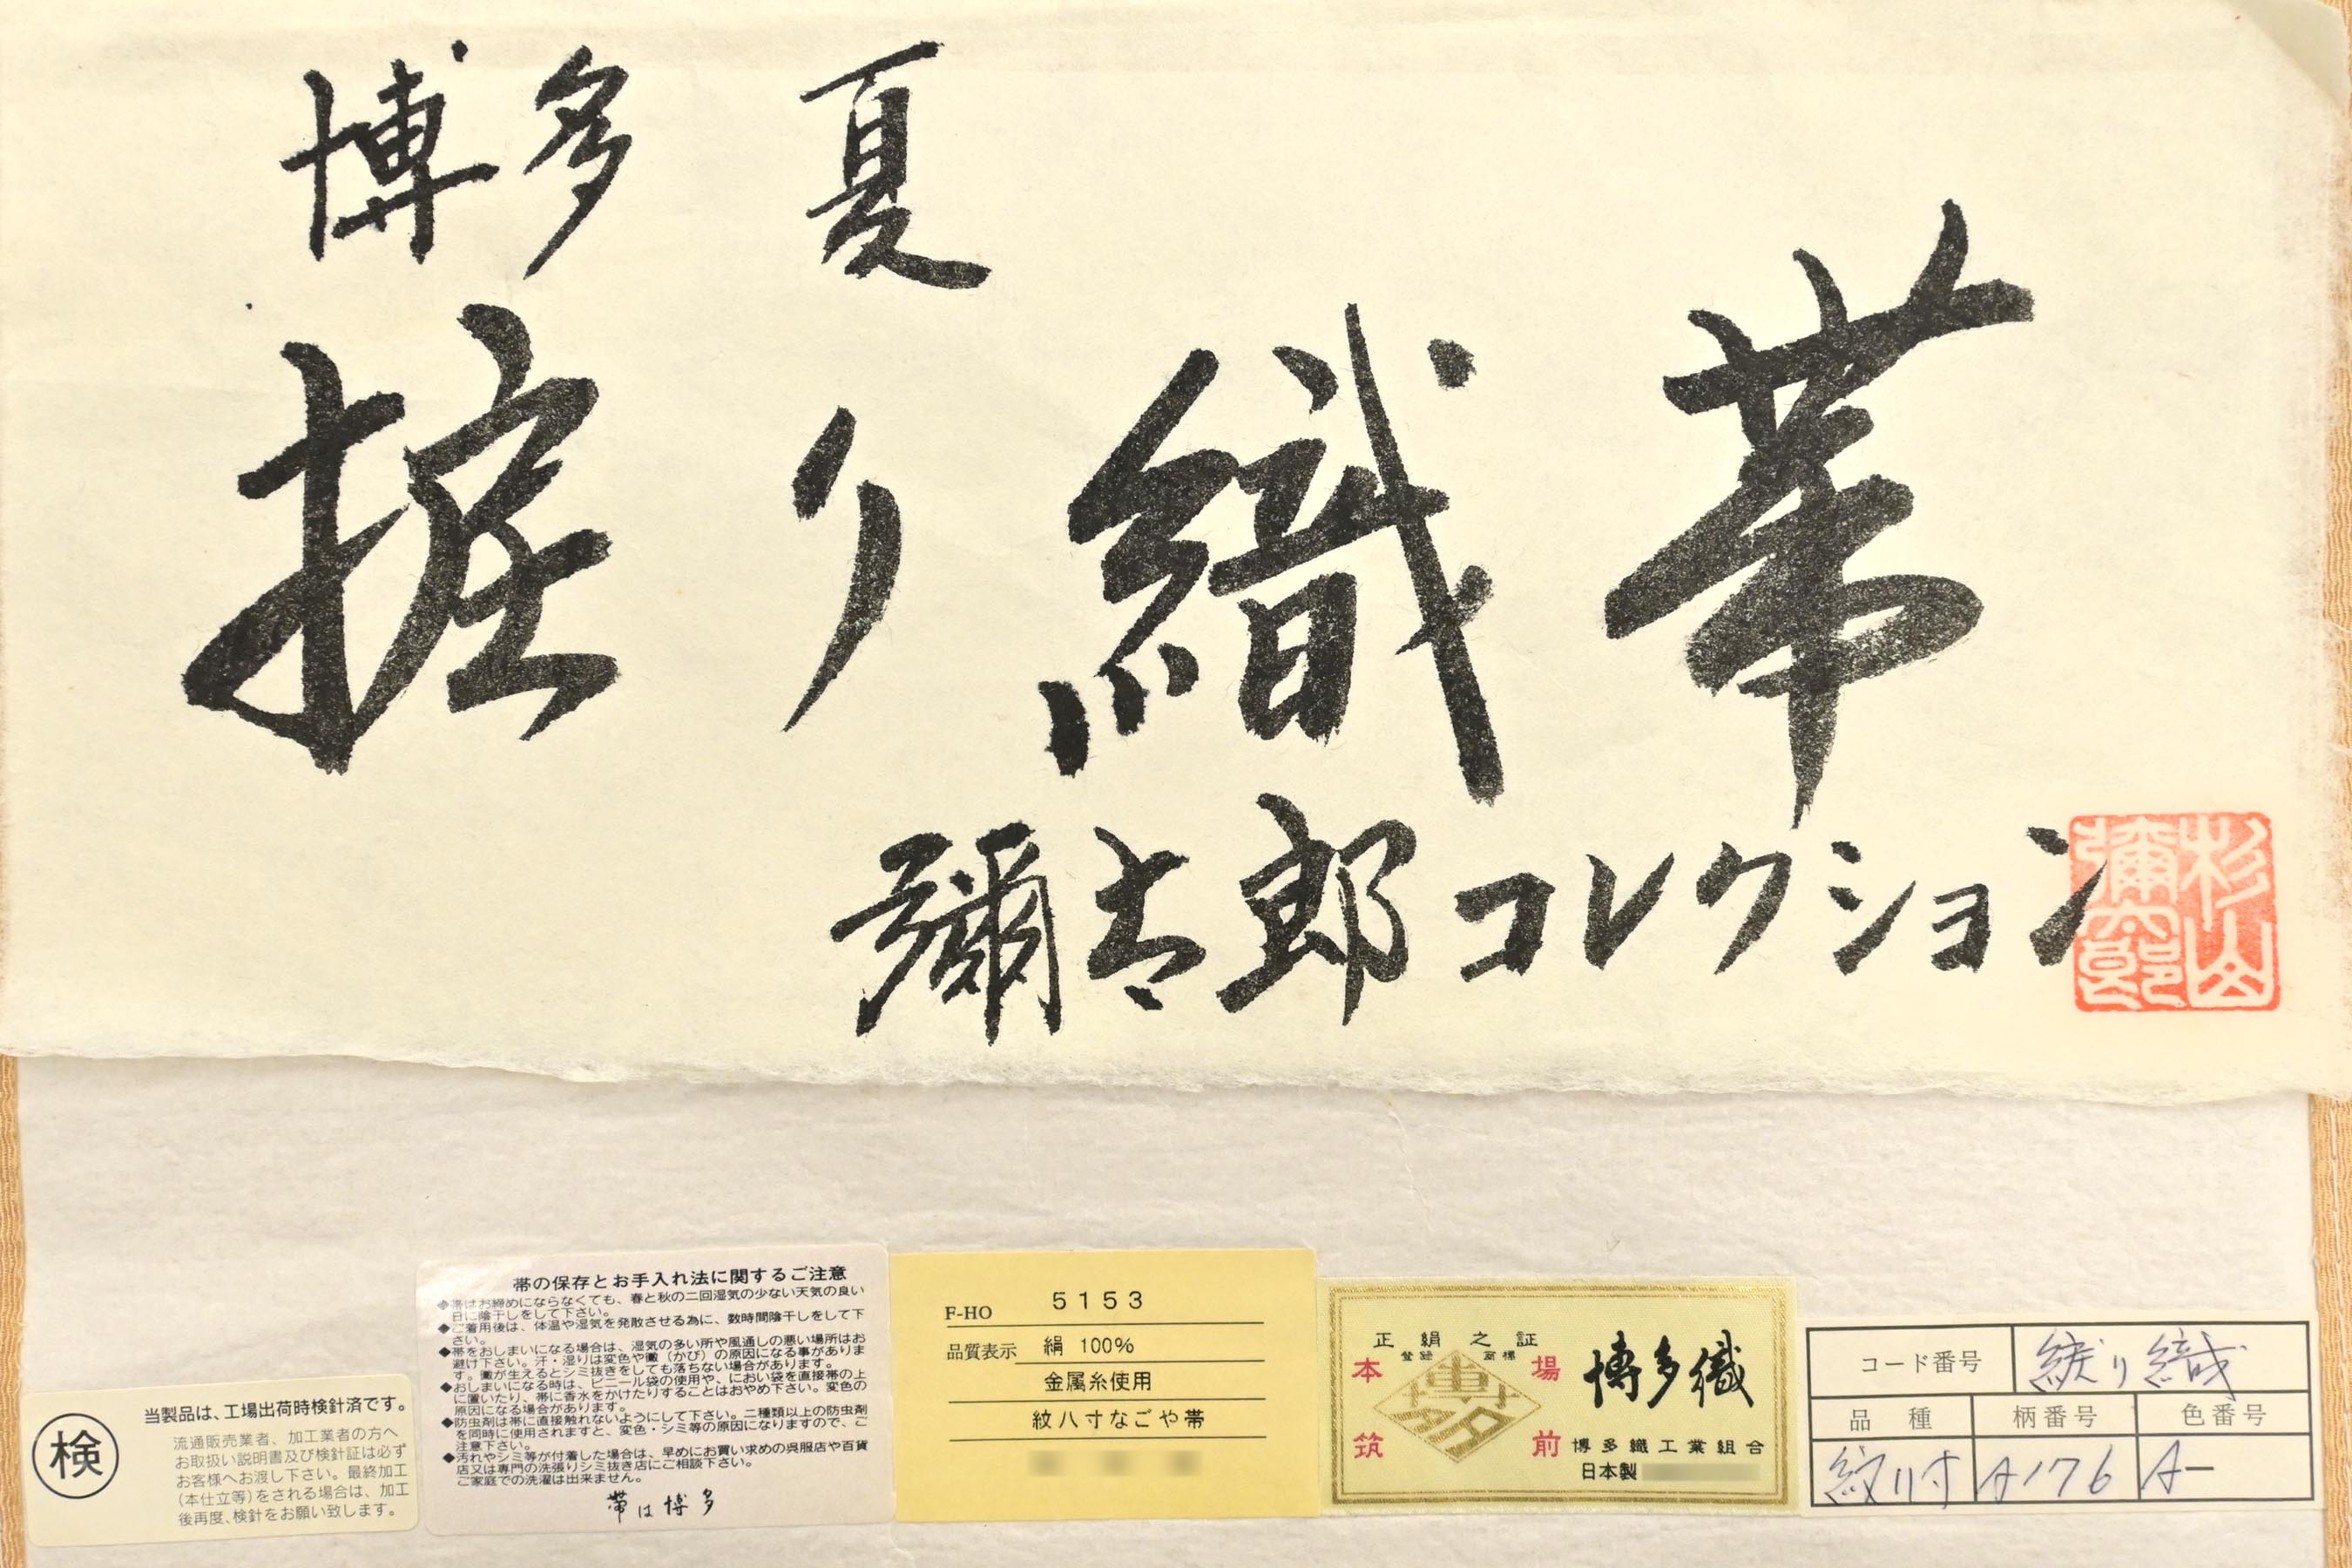 博多 夏
捩り織帯
彌太郎コレクション
杉山
彌太郎
検
当製品は、工場出荷時検針済です。
流通販売業者、加工業者の方へ
お取扱い説明書及び検針証は必ず
お客様へお渡し下さい。最終加工
(本仕立等)をされる場合は、加工
後再度、検針をお願い致します。
帯の保存とお手入れ法に関するご注意
◆帯はお締めにならなくても、春と秋の二回湿気の少ない天気の良い
日に陰干しをして下さい。
◆ご着用後は、体温や湿気を発散させる為に、数時間陰干しをして下
さい。
◆帯をおしまいになる場合は、湿気の多い所や風通しの悪い場所はお
避け下さい。汗・湿りは変色や黴(かび)の原因になる事がありま
す。黴が生えるとシミ抜きをしても落ちない場合があります。
◆おしまいになる時は、ビニール袋の使用や、におい袋を直接帯の上
に置いたり、帯に香水をかけたりすることはおやめ下さい。変色の
原因になる場合があります。
◆防虫剤は帯に直接触れないようにして下さい。二種類以上の防虫剤
を同時に使用されますと、変色・シミ等の原因になりますので、ご
注意下さい。
◆汚れやシミ等が付着した場合は、早めにお買い求めの呉服店や百貨
店又は専門の洗張りシミ抜き店にご相談下さい。
ご家庭での洗濯は出来ません。
帯は博多
F-HO 5153
品質表示 絹 100%
金属糸使用
紋八寸なごや帯
正絹之証
登録 商標
本場
筑前
博多
博多織
博多織工業組合
日本製
コード番号 綟り織
品種 柄番号 色番号
紋八寸 A176 A-